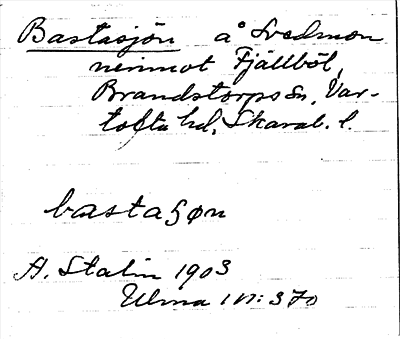 Bastasjön å Svedmon
nerimot Fjällböl,
Brandstorps Sn, Var-
tofta hd, Skarab. l.
bastaʂøn
A. Stalin 1903
Ulma 1 N: 370